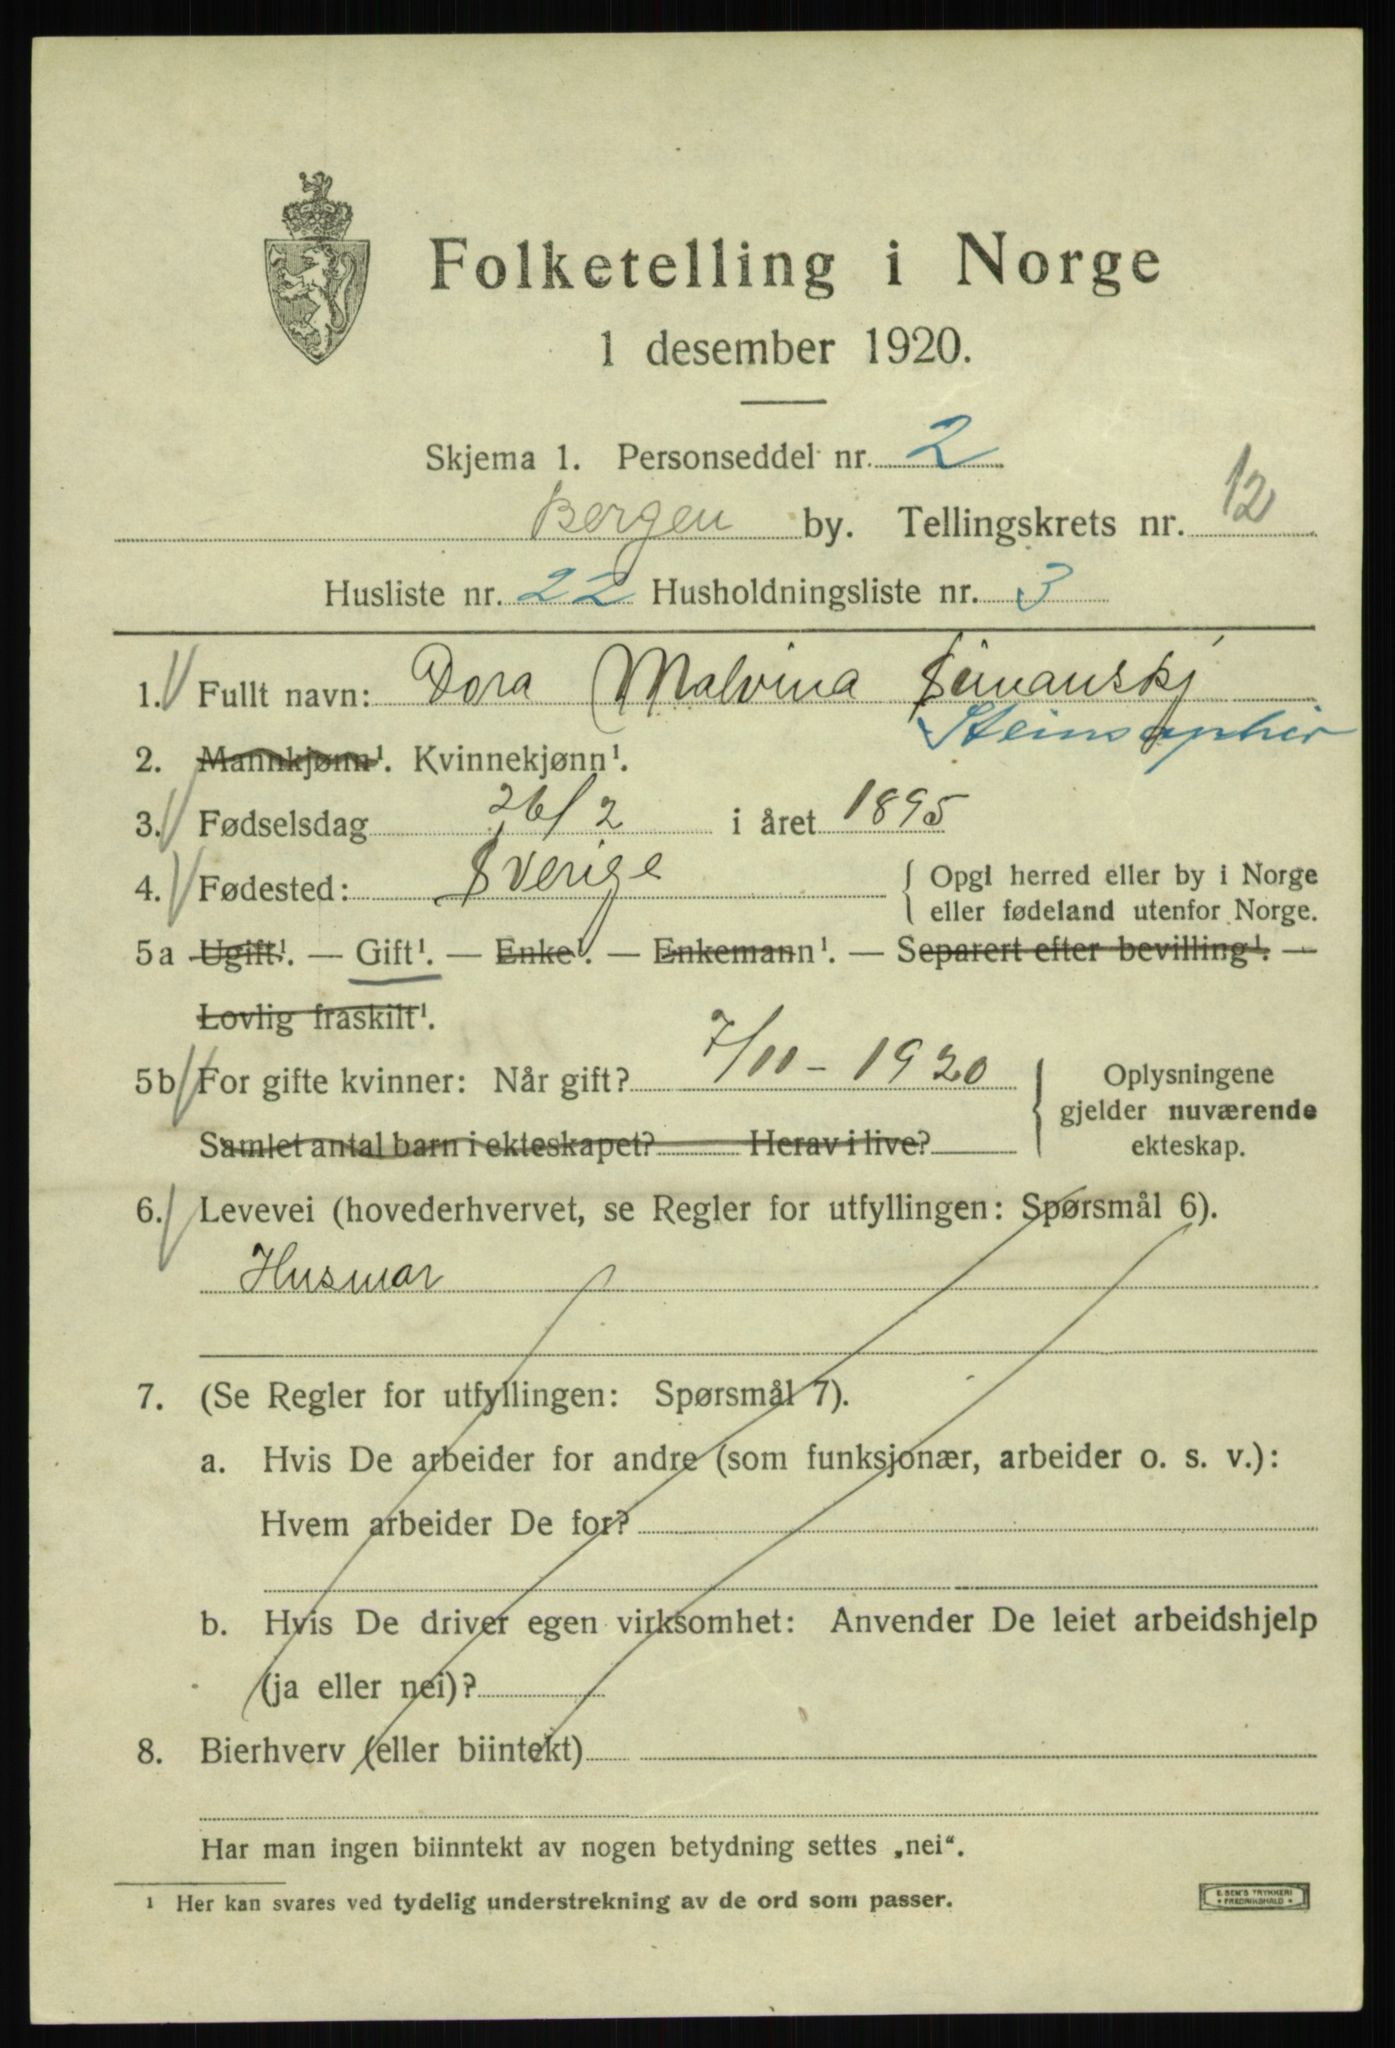 Folketelling i Norge
1 desember 1920.
Skjema 1. Personseddel nr. 2
Bergen by. Tellingskrets nr. 12
Husliste nr. 22 Husholdningsliste nr. 3
1. Fullt navn: Dora Malvina Simanskj
Steinsaphir
2. Mannkjønn¹. Kvinnekjønn¹.
3. Fødselsdag 26/2 i året 1895
4. Fødested: Sverige { Opgl herred eller by i Norge
eller fødeland utenfor Norge.
5a Ugift¹. — Gift¹. — Enke¹. — Enkemann¹. — Separert efter bevilling¹. —
Lovlig fraskilt¹.
5b For gifte kvinner: Når gift? 7/11 - 1920 { Oplysningene
gjelder nuværende
Samlet antal barn i ekteskapet? Herav i live? ekteskap.
6. Levevei (hovederhvervet, se Regler for utfyllingen: Spørsmål 6).
Husmor
7. (Se Regler for utfyllingen: Spørsmål 7).
a. Hvis De arbeider for andre (som funksjonær, arbeider o. s. v.):
Hvem arbeider De for?
b. Hvis De driver egen virksomhet: Anvender De leiet arbeidshjelp
(ja eller nei)?
8. Bierhverv (eller biintekt)
Har man ingen biinntekt av nogen betydning settes „nei“.
¹ Her kan svares ved tydelig understrekning av de ord som passer.
E. SEM'S TRYKKERI
• FREDRIKSHALD •